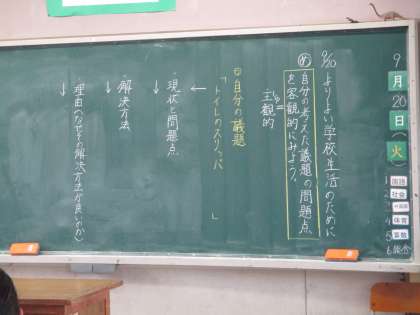 9月20日火
9/20 よりよい学校生活のために
め 自分の考えた議題の問題点
を客観的にみよう。
主観的
自分の議題
「トイレのスリッパ 」
↓
・現状と問題点
↓
・解決方法
↓
・理由(なぜその解決方法が良いのか)
↓
国語
社会
体育
算数
5
6 総合